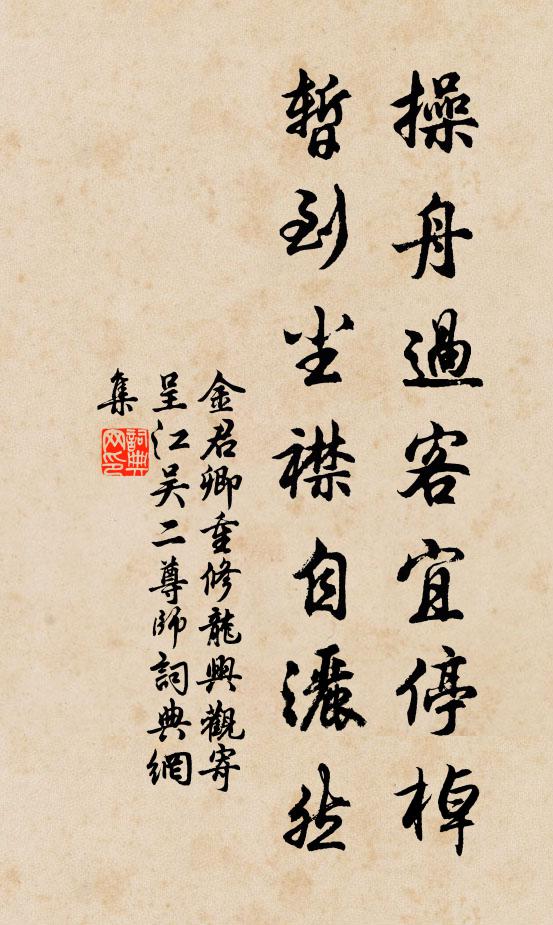 操舟過客宜停棹
暫到塵襟自灑然
金君卿重修龍興觀寄
呈江吴二尊師詞典網
集
詞典
網印